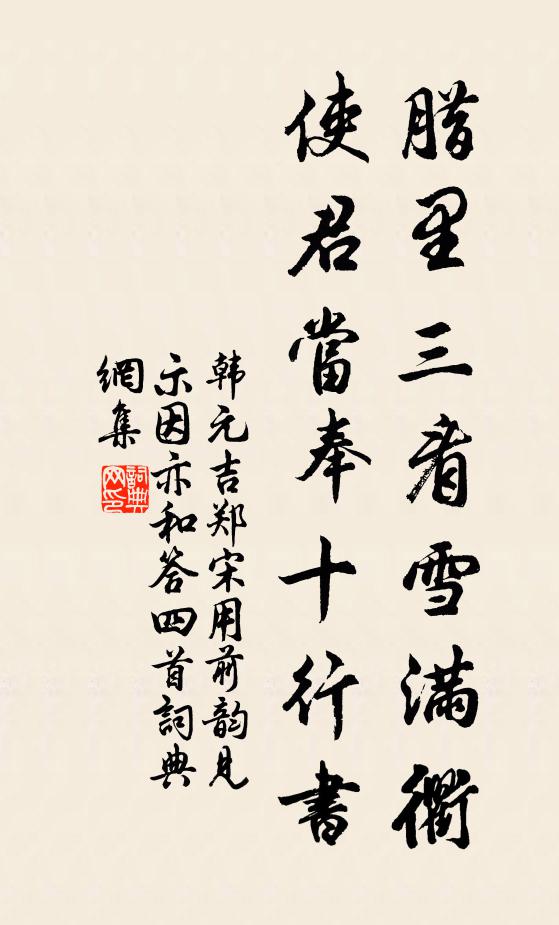 腊里三看雪满衢
使君當奉十行書
韩元吉郑宋用前韵见
示因亦和答四首詞典
網集
詞典
网印